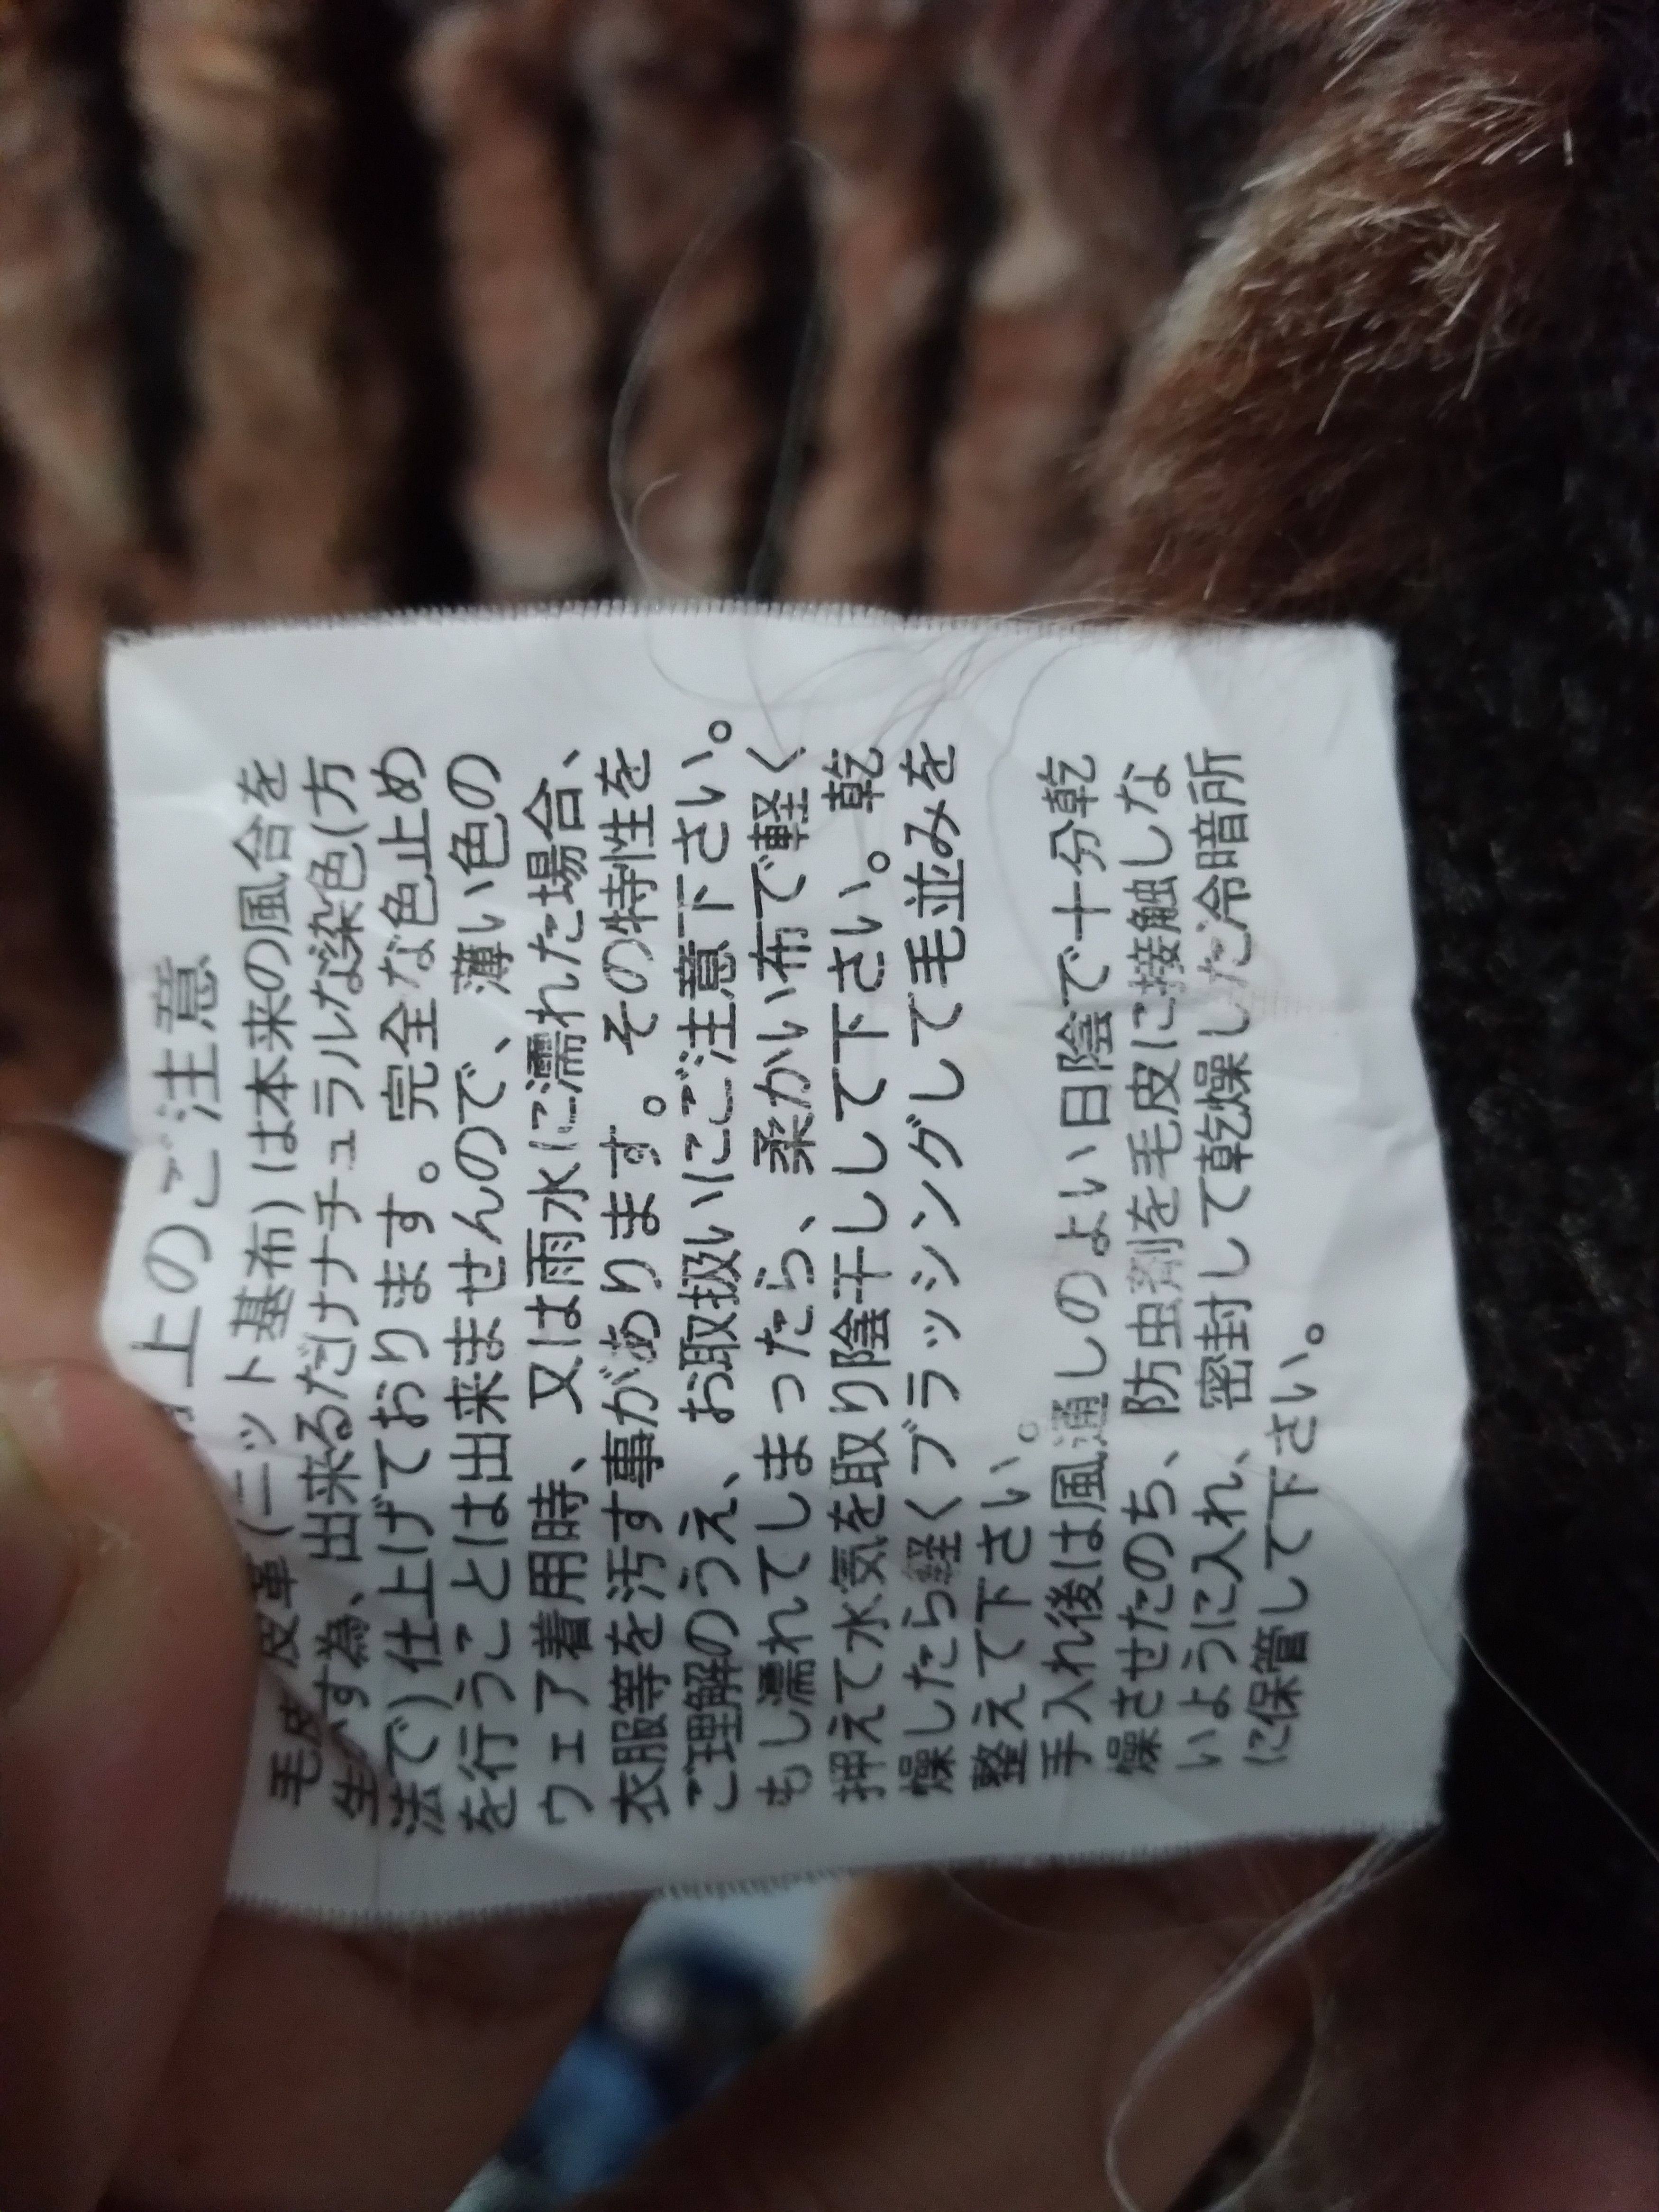 上のご注意
毛皮 皮革(ニット基布)は本来の風合を
生かす為、出来るだけナチュラルな染色(方
法で)仕上げております。完全な色止め
を行うことは出来ませんので、薄い色の
ウェア着用時、又は雨水に濡れた場合、
衣服等を汚す事があります。その特性を
ご理解のうえ、お取扱いにご注意下さい。
もし濡れてしまったら、柔かい布で軽く
押えて水気を取り陰干しして下さい。乾
燥したら軽くブラッシングして毛並みを
整えて下さい。
手入れ後は風通しのよい日陰で十分乾
燥させたのち、防虫剤を毛皮に接触しな
いように入れ、密封して乾燥した冷暗所
に保管して下さい。